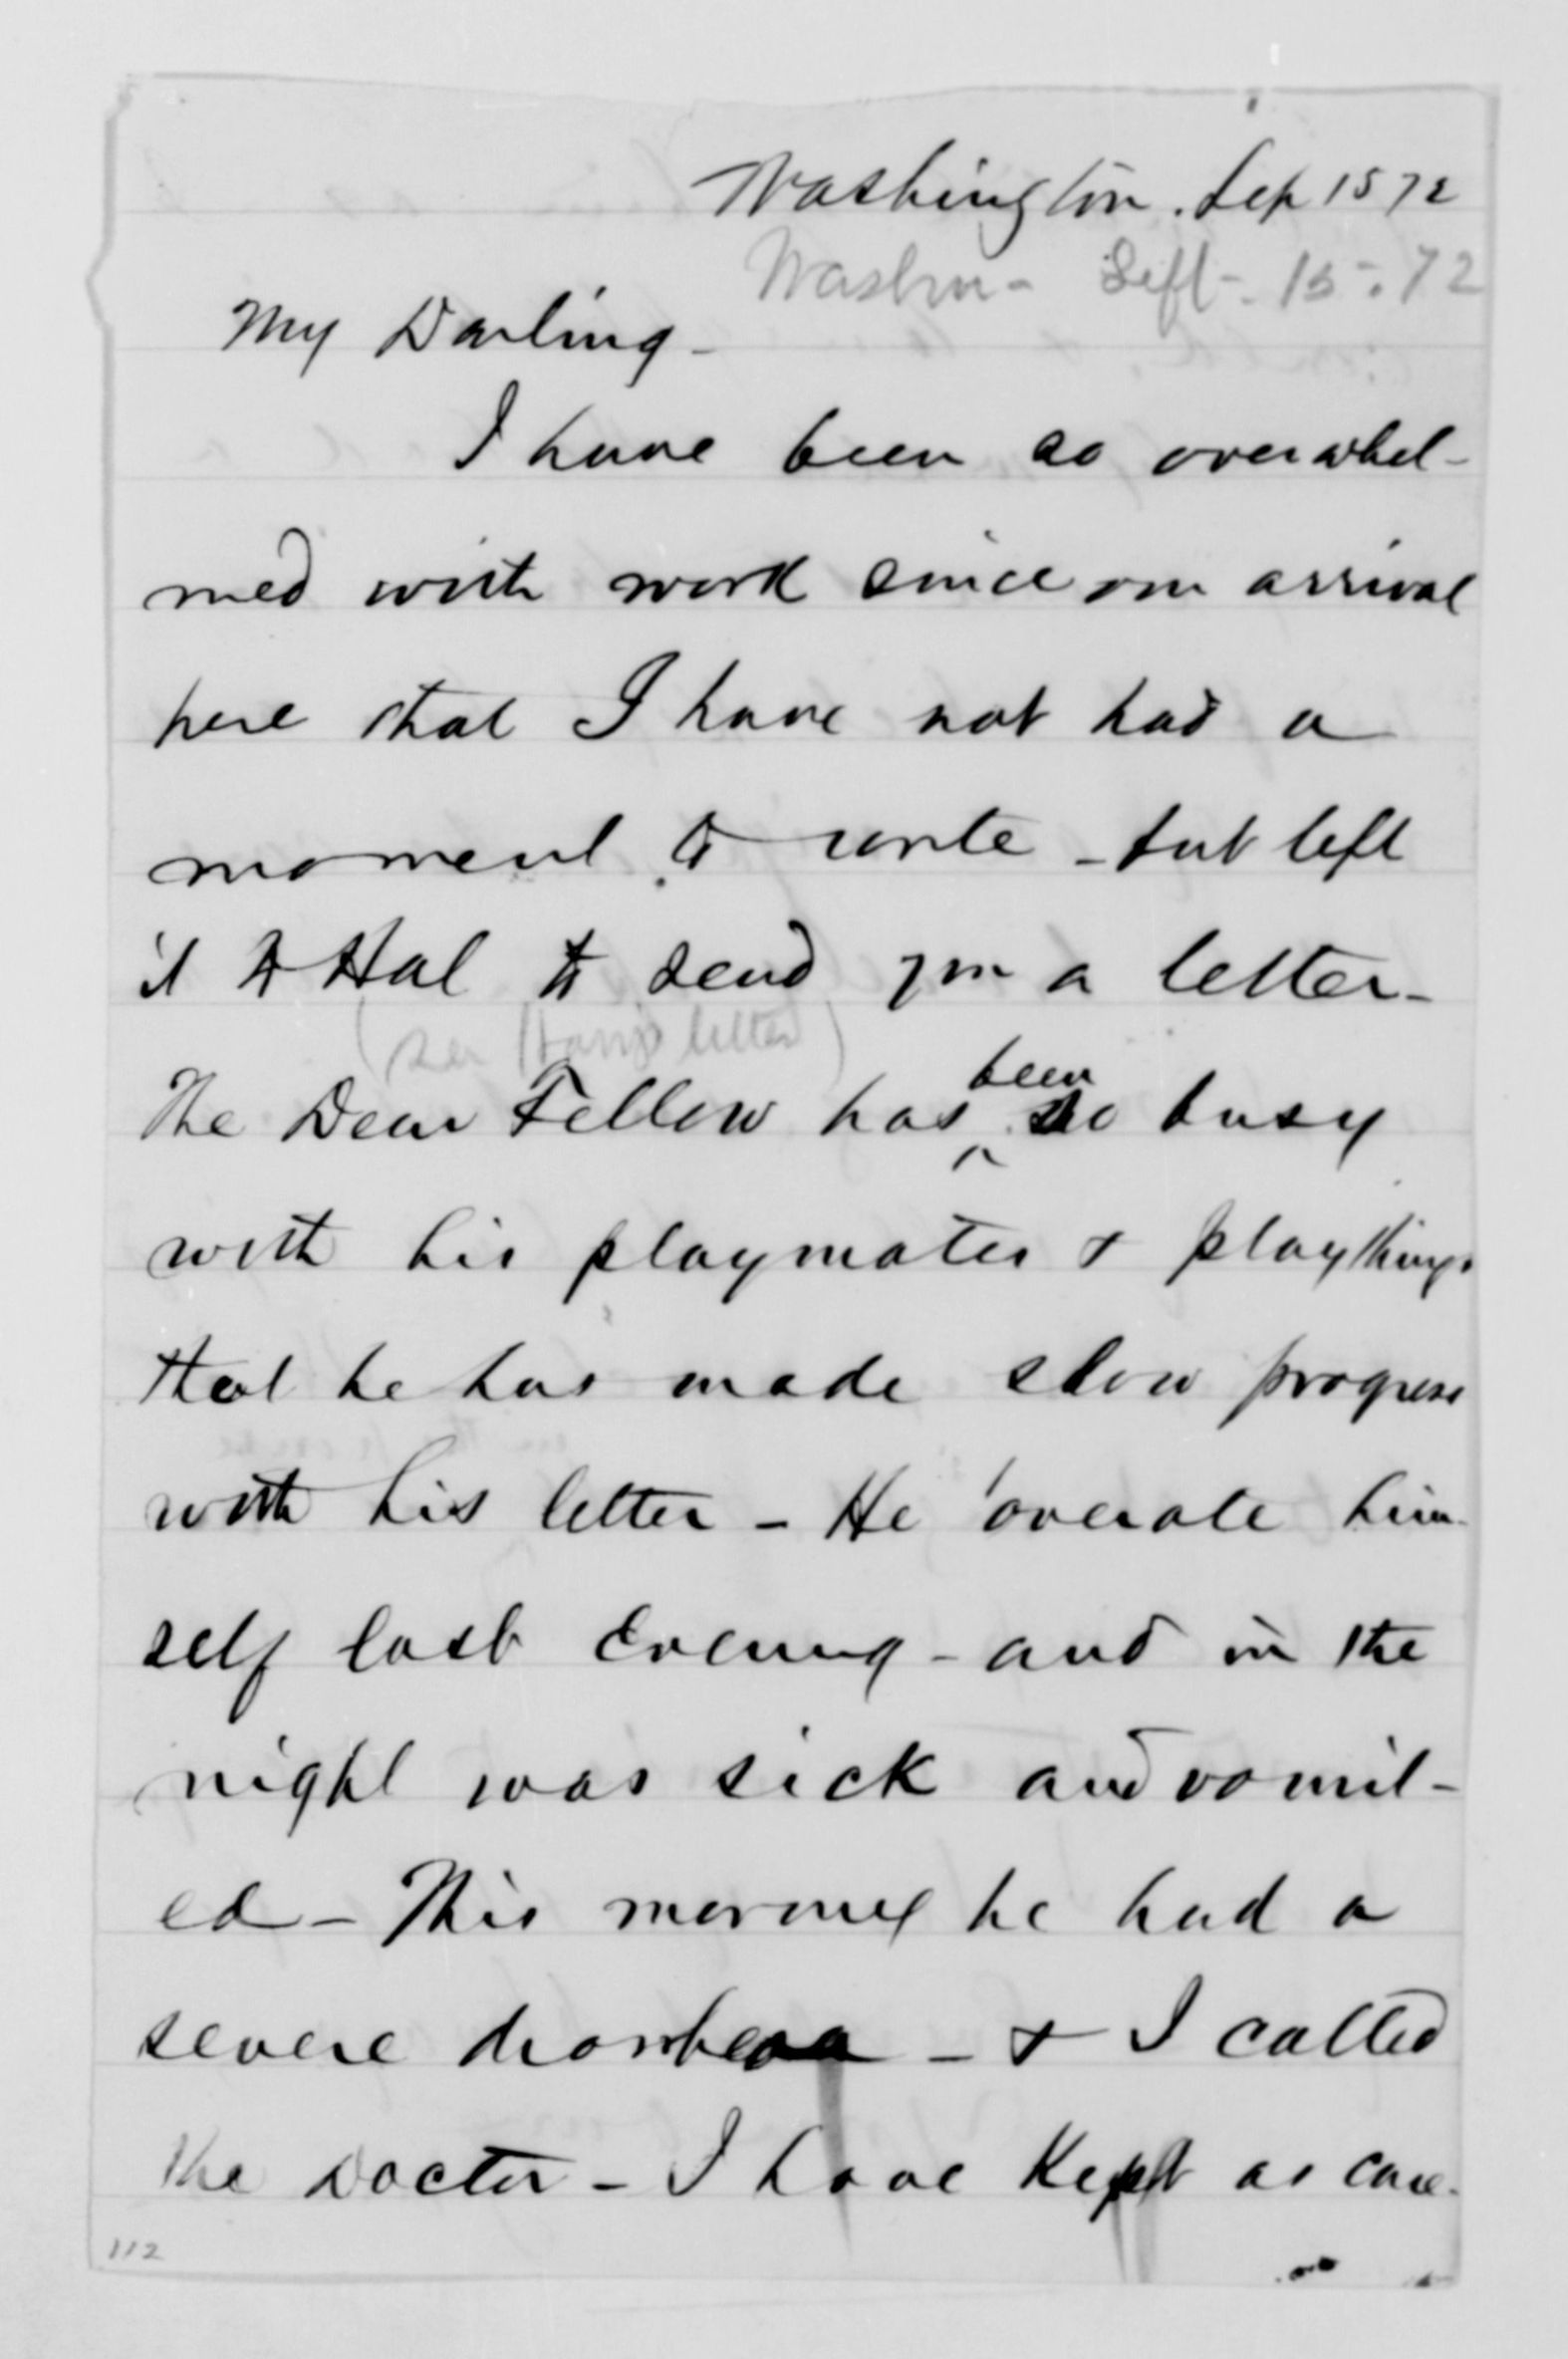 Washington. Sep 15 72
Washn- Sept- 15-.72
My Darling-
I have been so overwhel-
med with work since our arrival
here that I have not had a
moment to write - but left
it to Hal to send you a letter-
(see Harry's letter)
been
The Dear Fellow has ^ so busy
with his playmates + playthings
that he has made slow progress
with his letter - He overate him-
self last Evening - and in the
night was sick and vomit-
ed - This morning he had a
severe diarrhea - + I called
the Doctor - I have Kept as care-
112